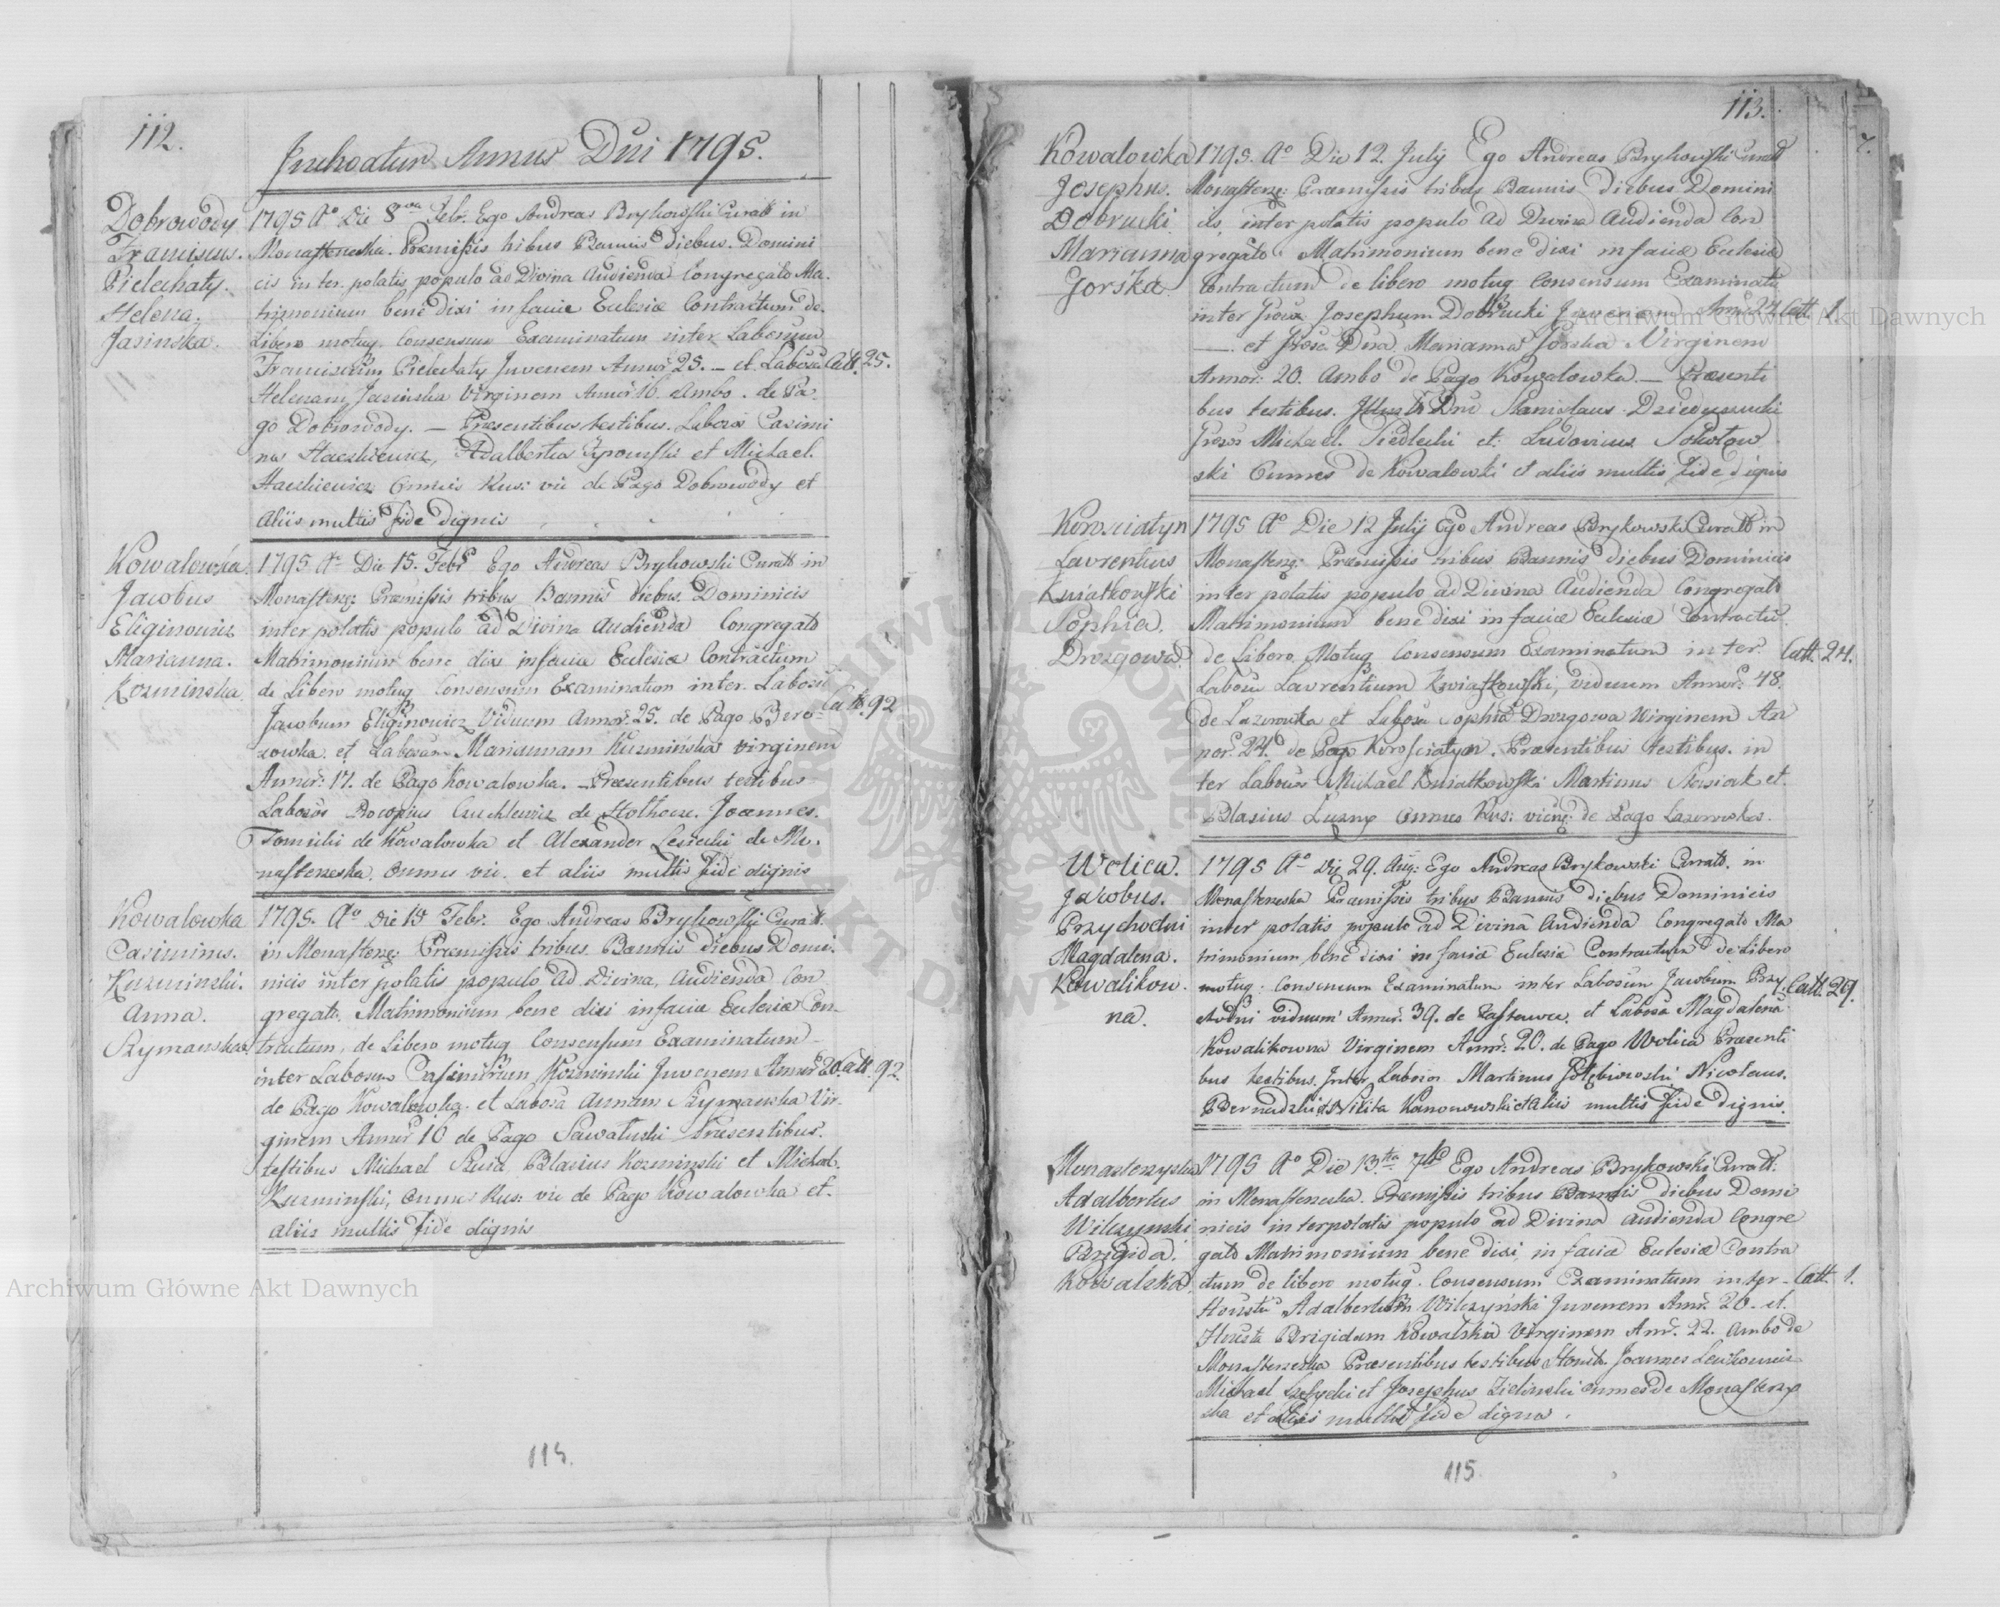 112.
Inchoatur Annus Dni 1795.
Dobrowody
Franciscus.
Pielechaty.
Helena.
Jasinska.
1795 Ao Die 8va Febr. Ego Andreas Brykowski Curatt in
Monasterzeska. Præmissis tribus Bannis diebus. Domini
cis inter. polatis populo ad Divina Audienda Congregato Ma.
trimonium bene dixi in faciæ Eclesiæ Contractum de.
Libero motuq Consensus Examinatum inter Labosum
Franciscum Pielechaty Juvenem Annor 25. — et Labosa Catt. 25.
Helenam Jasinska Virginem Annor 16. ambo. de Pa.
go Dobrowody. — Præsentibus testibus. Labosis Casimi
rus Haczkiewicz, Adalbertus et Michael.
Haczkiewicz Omnes Rus: vii de Pago Dobrowody et
Aliis multis fide dignis
Kowalowka.
Jacobus
Eliginowicz
Marianna.
Kozminska
1795 Ao Die 15. Febr Ego Andreas Brykowski Curatt in
Monasterz: Præmissis tribus Bannis diebus. Dominicis
inter polatis populo ad Divina Audienda Congregato
Matrimonium bene dixi in faciæ Eclesiæ Contractum
de Libero motuq Consensum Examinatum inter. Labosu
Jacobum Eliginowicz Viduum Annor. 25. de Pago Bero= Catt. 92
zowka. et Labosam Mariannam Kuzminska virginem
Annor: 17. de Pago Kowalowka. — Præsentibus testibus
Labosos Procopius de Joannes.
Tomicki de Kowalowka et Alexander Lesiecki de Mo.
nasterzeska. Omnes vii. et aliis multis fide dignis
Kowalowka
Casimirus.
Kuzminski.
Anna.
Szymanska
1795. Ao Die 15 Febr. Ego Andreas Brykowski Curatt.
in Monasterz: Præmissis tribus. Bannis diebus Domi.
nicis inter polatis populo ad Divina, Audienda Con
gregato. Matrimonium bene dixi in faciæ Eclesiæ Con.
tractum, de Libero motuq Consensum Examinatum
inter Labosum Casimirum Kozminski Juvenem Annor 20. Catt. 92.
de Pago Kowalowka. et Labosa Annam Szymanska Vir.
ginem Annor 16 de Pago Sawaluski Præsentibus.
testibus Michael Blasius Kozminski et Michal.
Kuzminski, Omnes Rus: vii de Pago Kowalowka et.
aliis multis fide dignis
115.
113.
7.
Kowalowka
Josephus.
Dobrucki.
Marianna
Gorska.
1795. Ao Die 12. July Ego Andreas Brykowski Curatt
Monasterz: Præmissis tribus Bannis diebus Domini
cis, inter polatis populo ad Divina Audienda Con
gregato. Matrimonium bene dixi in faciæ Eclesiæ
Contractum de libero motuq Consensum Examinatu
inter Josephum Dobrucki Juvenem Annor 24 Catt. 1.
— et Marianna Gorska Virginem
Annor: 20. Ambo de Pago Kowalowka. — Præsenti
bus testibus. Dni Stanislaus Dzieduszucki
Michael. Siedlecki et: Ludovicus Sokolow
ski Omnes de Kowalowki et aliis multis fide dignis
Korosciatyn
Laurentius
Kwiatkowski
Sophia.
Drozgowa
1795 Ao Die 12 July Ego Andreas Brykowski Curatt in
Monasterz: Præmissis tribus Bannis diebus Dominicis
inter polatis populo ad Divina Audienda Congregato
Matrimonium bene dixi in faciæ Eclesiæ Contractu
de Libero Motuq Consensum Examinatum inter. Catt. 24.
Labosu Laurentium Kwiatkowski, viduum Annor. 48.
de Lazarowka et Labosa Sophia Drozgowa Virginem An
nor 24. de Pago Korosciatyn. Præsentibus testibus. in
ter Labosos Michael Kwiatkowski Martinus et.
Blasius Luzny Omnes Rus: vicinq: de Pago Lazarowka.
Wolica.
Jakobus.
Przychodni
Magdalena.
Kowalikow.
na.
1795 Ao Die 29. Aug: Ego Andreas Brykowski Curato. in
Monasterzeska Præmissis tribus Bannis diebus Dominicis
inter polatis populo ad Divina Audienda Congregato Ma
trimonium bene dixi in faciæ Eclesiæ Contractum de Libero
motuq: Consensum Examinatum inter Labosum Jacobum Przy. Catt. 29.
chodni viduum Annor. 39. de et Labosa Magdalena
Kowalikowna Virginem Annor. 20. de Pago Wolica Præsenti
bus testibus. Inter Labosos Martinus Golębiowski Nicolaus.
Bernadzki et Nikita Kanonowski et Aliis multis fide dignis.
Monasterzyska
Adalbertus
Wilczynski
Brzgida.
Kowalska
1795 Ao Die 13tia 7br Ego Andreas Brykowski Curatt.
in Monasterzeska. Præmissis tribus Bannis diebus Domi
nicis interpolatis populo ad Divina Audienda Congre
gato Matrimonium bene dixi, in faciæ Eclesiæ Contra
ctum de libero motuq. Consensum Examinatum inter — Catt. 1.
Honstu Adalbertum Wilczyński Juvenem Annor. 20. et.
Honsta Brigidam Kowalska Virginem Annor. 22. ambo de
Monasterzeska Præsentibus testibus Honstis. Joannes
Michael et Josephus Zielinski Omnes de Monasterzy
ska et aliis multis fide dignis.
115
Archiwum Główne Akt Dawnych
Archiwum Główne Akt Dawnych
ARCHIWUM GŁÓWNE AKT DAWNYCH